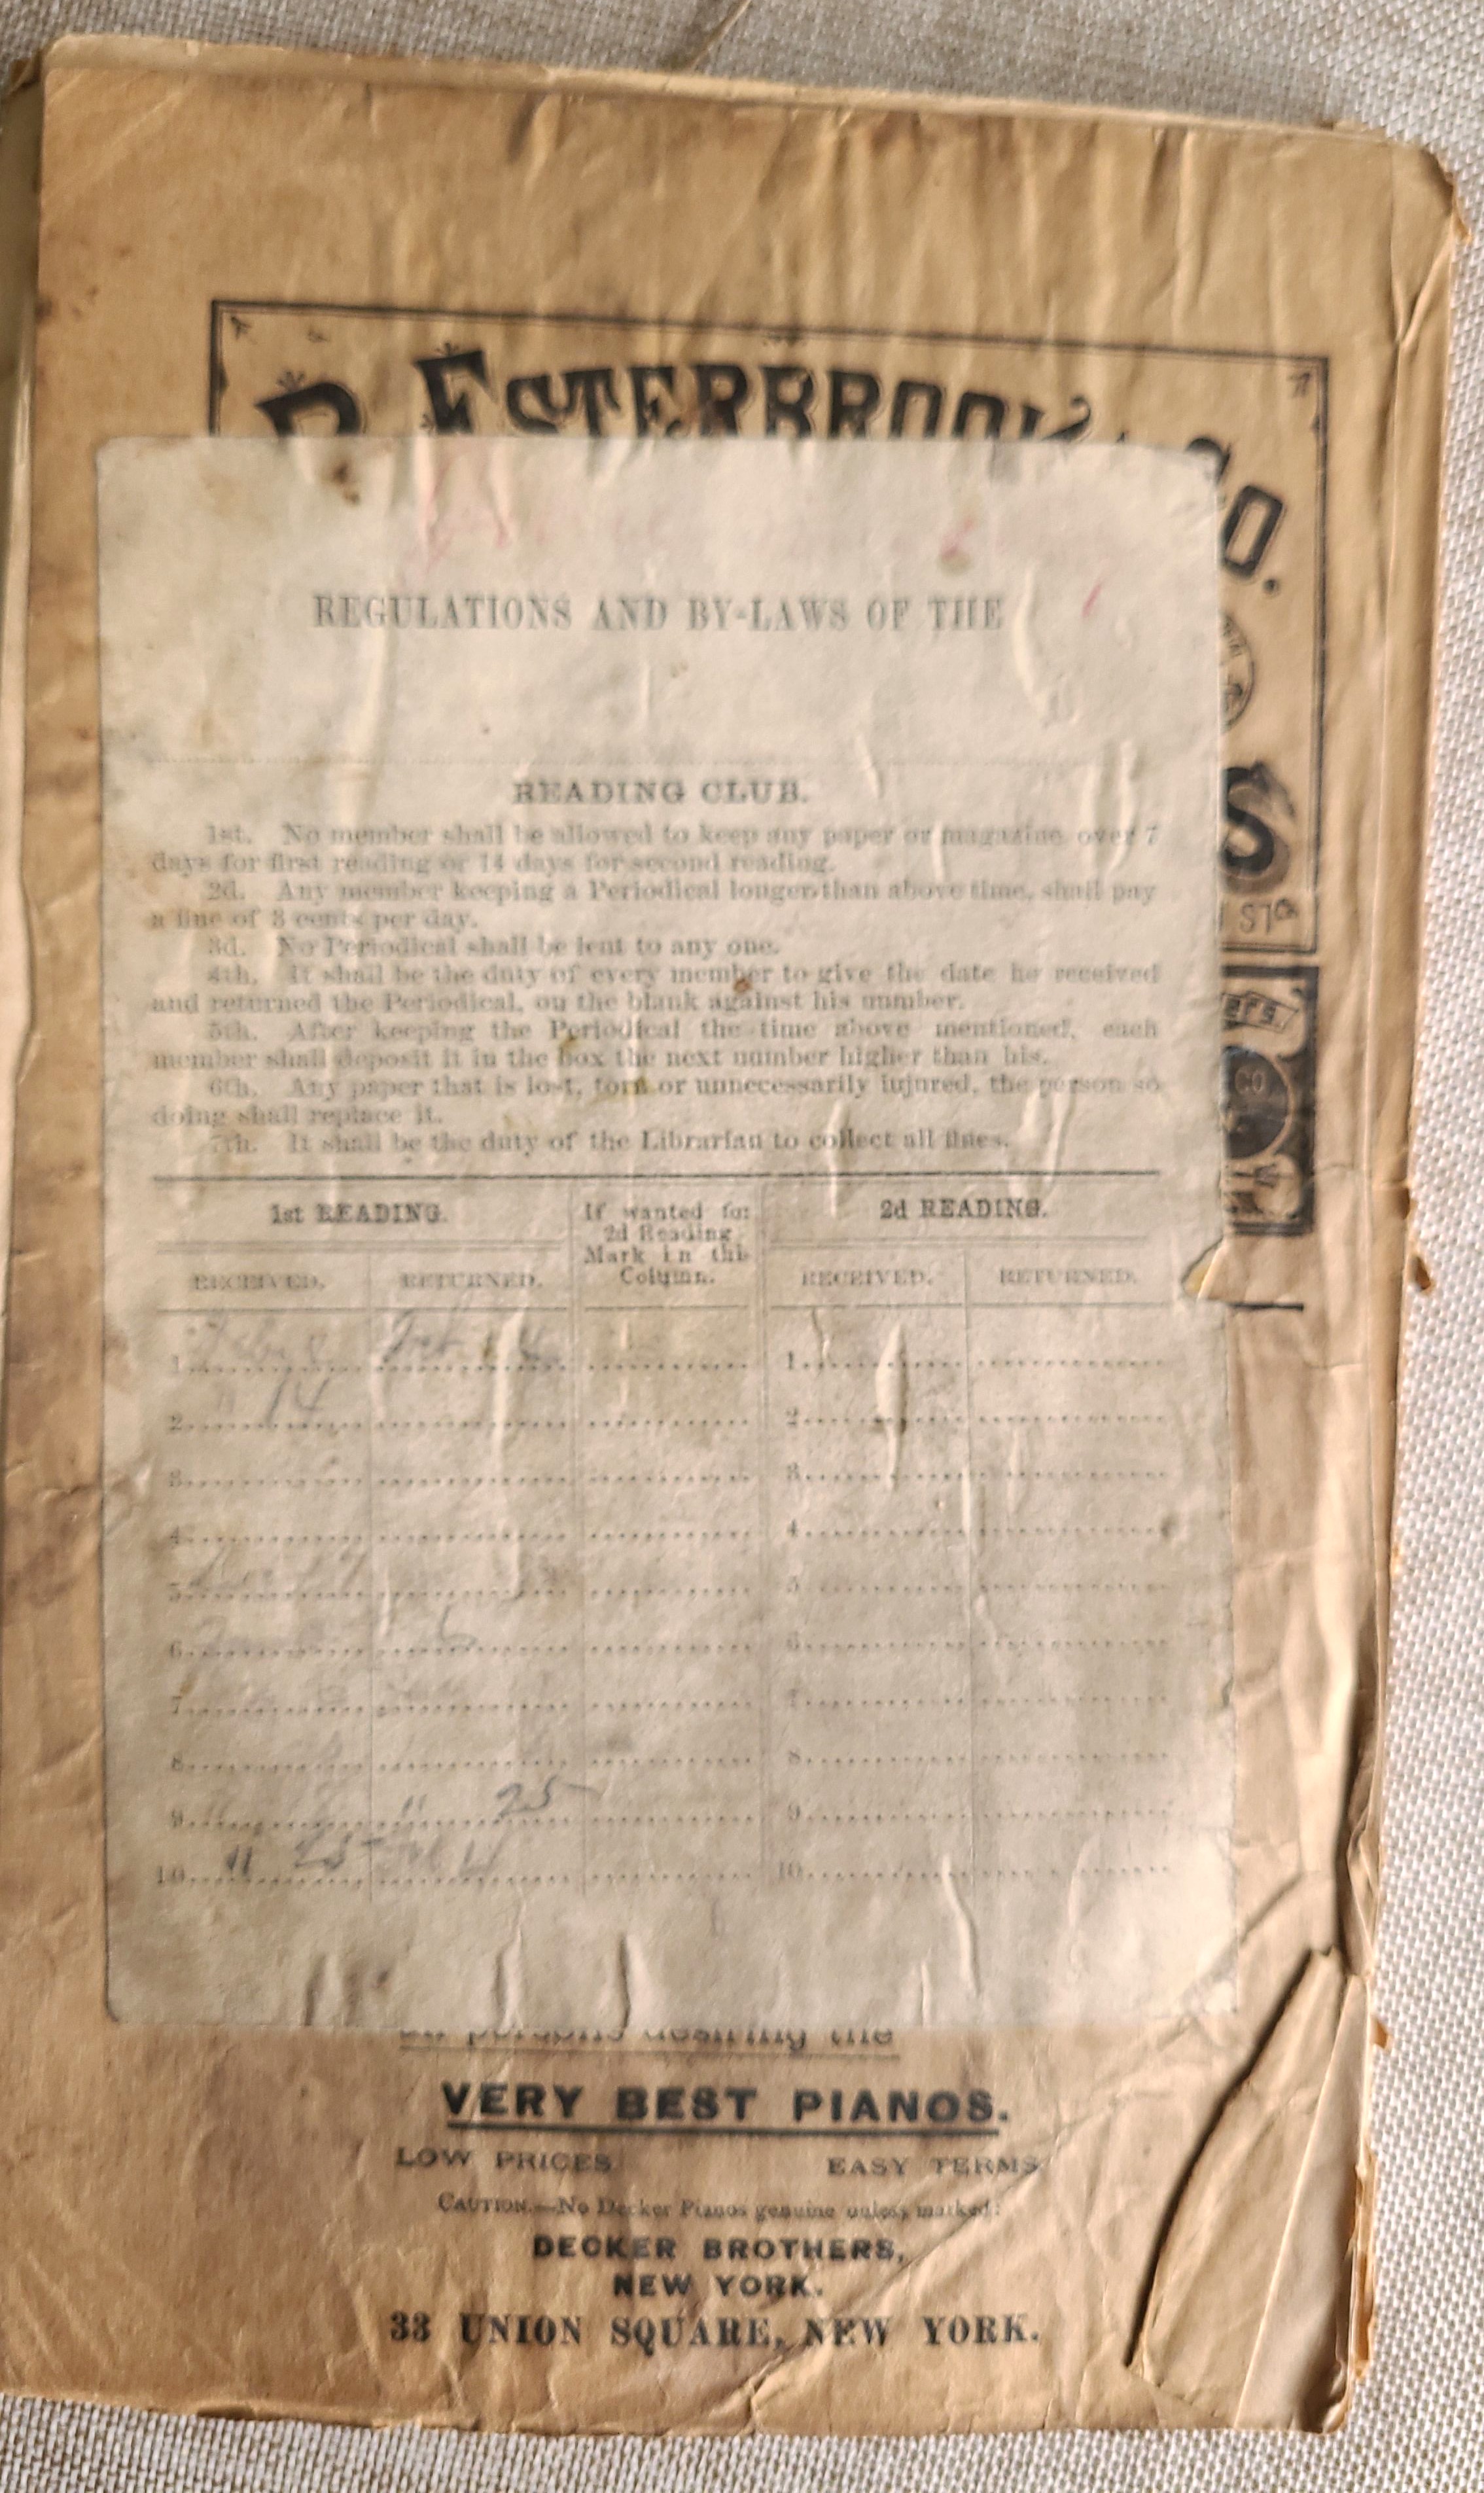 R. ESTERBROOK & CO.
REGULATIONS AND BY-LAWS OF THE
READING CLUB.
1st. No member shall be allowed to keep any paper or magazine over 7
days for first reading or 14 days for second reading.
2d. Any member keeping a Periodical longer than above time, shall pay
a fine of 3 cents per day.
3d. No Periodical shall be lent to any one.
4th. It shall be the duty of every member to give the date he received
and returned the Periodical, on the blank against his number.
5th. After keeping the Periodical the time above mentioned, each
member shall deposit it in the box the next number higher than his.
6th. Any paper that is lost, torn or unnecessarily injured, the person so
doing shall replace it.
7th. It shall be the duty of the Librarian to collect all fines.
1st READING.
If wanted for
2d Reading
Mark in this
Column.
2d READING.
RECEIVED. RETURNED. RECEIVED. RETURNED.
1 1
2 14 2
3 3
4 4
5 5
6 6 6
7 7
8 8
9 " 25 9
10 " 25 10
S
ST
CO
persons desiring the
VERY BEST PIANOS.
LOW PRICES. EASY TERMS.
CAUTION.—No Decker Pianos genuine unless marked:
DECKER BROTHERS,
NEW YORK.
33 UNION SQUARE, NEW YORK.